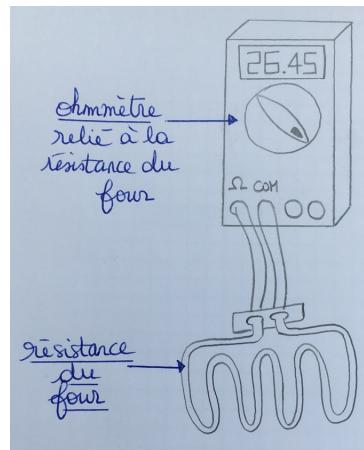 26.45
ohmmètre
relié à la
résistance du
four
Ω COM
résistance
du
four